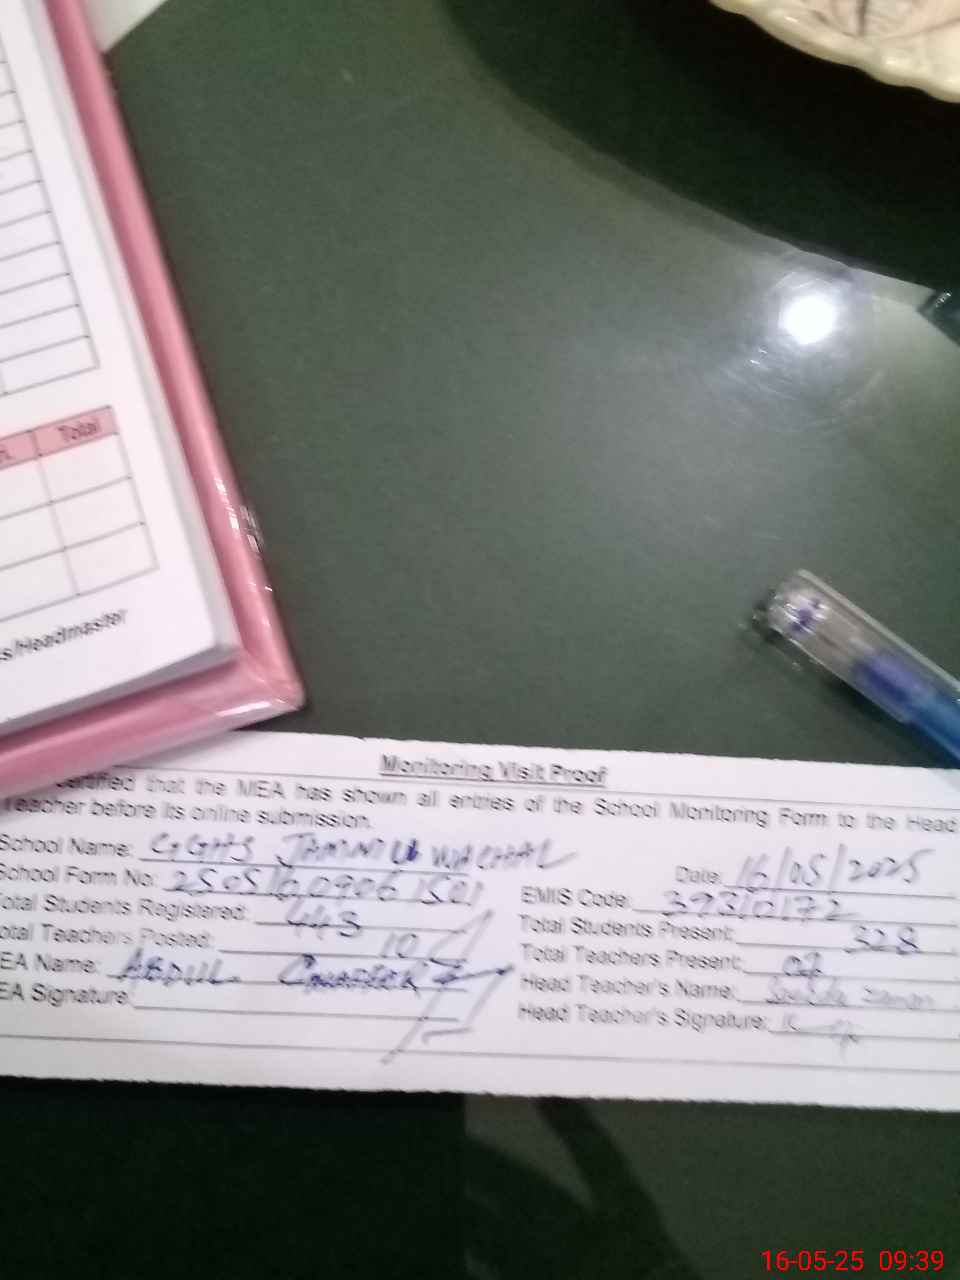 Total
s/Headmaster
Monitoring Visit Proof
certified that the MEA has shown all entries of the School Monitoring Form to the Head
Teacher before its online submission.
School Name: GGHS
Date: 16/05/2025
School Form No: 25051609061501
EMIS Code: 37310172
Total Students Registered: 443
Total Students Present: 328
otal Teachers Posted: 10
Total Teachers Present:
EA Name: ABDUL
Head Teacher's Name:
EA Signature:
Head Teacher's Signature:
16-05-25 09:39